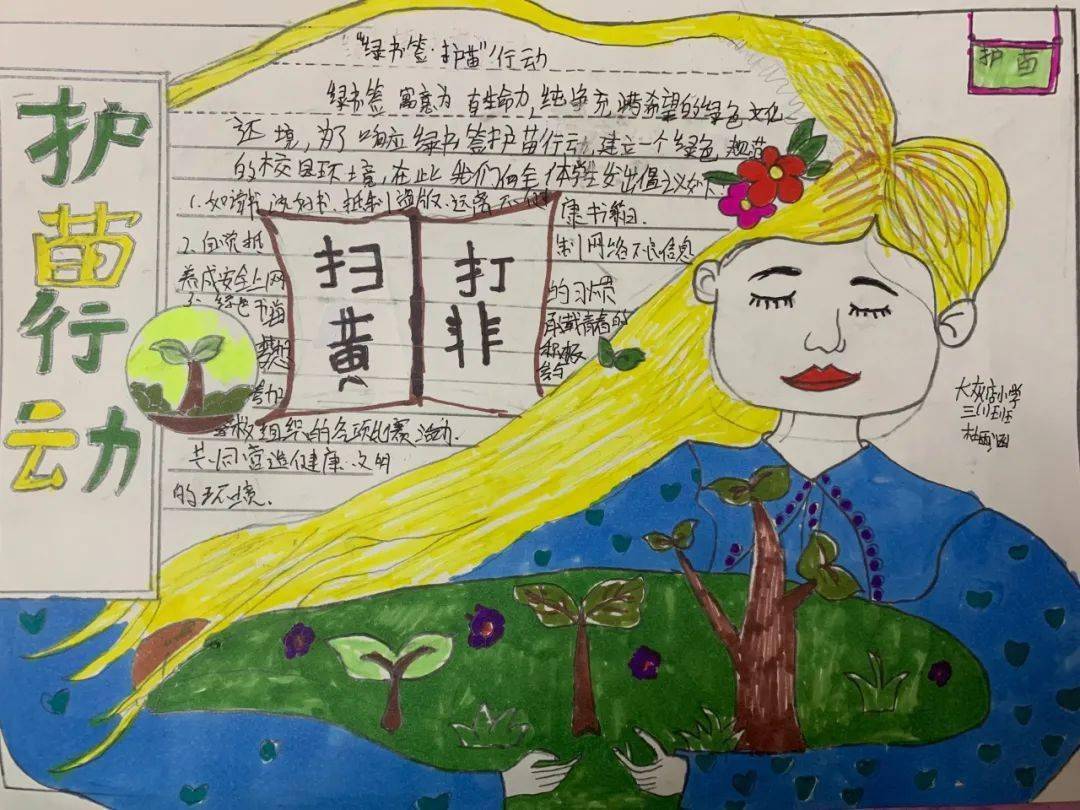 护苗行动
"绿书签·护苗"行动
绿书签 寓意为 有生命力,纯净充满希望的绿色文化
环境,为了响应绿书签护苗行动,建立一个绿色 规范
的校园环境,在此 我们向全体学生发出倡议如下
1.如读书、抵制盗版.远离不健康书籍.
2.自觉抵制网络不良信息
养成安全上网的习惯
3.绿色书海
承载青春的
梦想
积极
参与
努力
学校组织的各项比赛活动.
共同营造健康.文明
的环境.
扫黄
打非
护苗
大灰店小学
三(1)班
杜雨涵